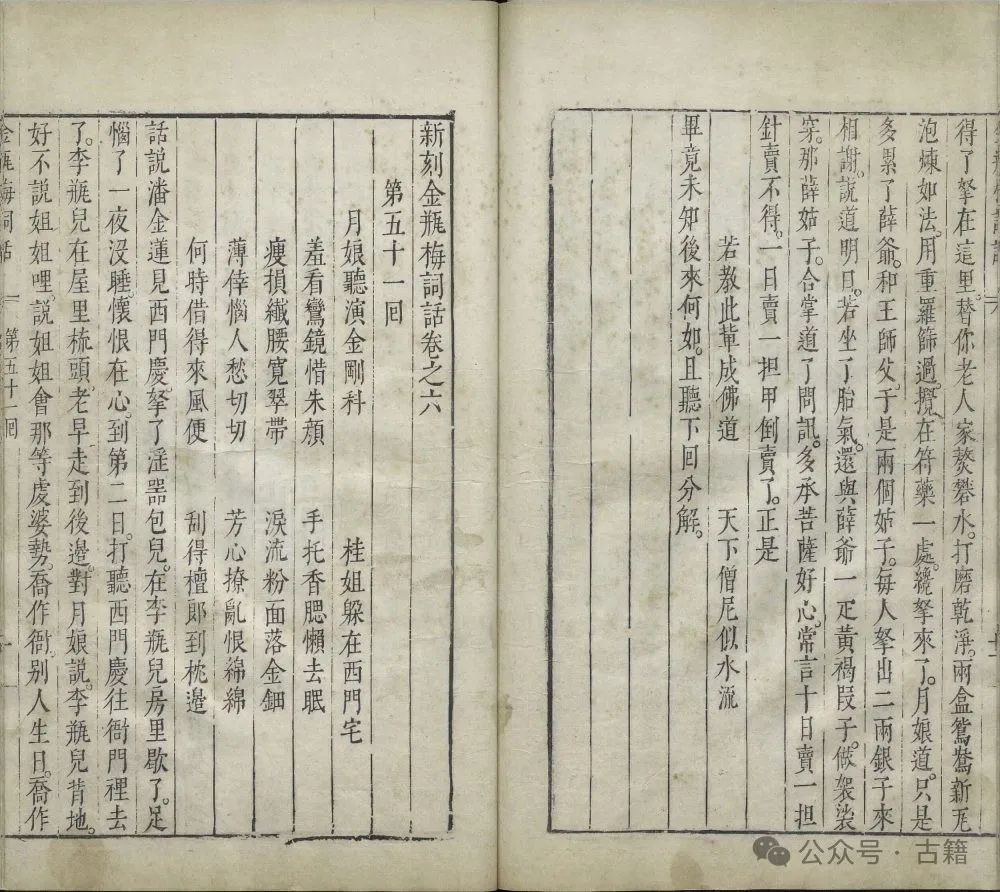 得了拏在這里。替你老人家熬礬水。打磨乾淨。兩盒鴛鴦新瓦
泡煉如法。用重羅篩過。攪在符藥一處。纔拏來了。月娘道。只是
多累了薛爺。和王師父。于是兩個姑子。每人拏出二兩銀子來
相謝。說道明日。若坐了胎氣。還與薛爺一疋黃褐叚子。做袈裟
穿。那薛姑子。合掌道了問訊。多承菩薩好心。常言十日賣一担
針賣不得。一日賣一担甲倒賣了。正是
若教此輩成佛道 天下僧尼似水流
畢竟未知後來何如。且聽下回分解。
新刻金瓶梅詞話卷之六
第五十一回
月娘聽演金剛科 桂姐躱在西門宅
羞看鸞鏡惜朱顏 手托香腮懶去眠
瘦損纖腰寛翠帶 淚流粉面落金鈿
薄倖惱人愁切切 芳心撩亂恨綿綿
何時借得來風便 刮得檀郎到枕邊
話說潘金蓮見西門慶。拏了淫器包兒。在李瓶兒房里歇了。足
惱了一夜没睡。懷恨在心。到第二日。打聽西門慶往衙門裡去
了。李瓶兒在屋里梳頭。老早走到後邊。對月娘說。李瓶兒背地。
好不說姐姐哩。說姐姐會那等虔婆勢。喬作衙。别人生日。喬作
金瓶梅詞話 第五十一回 一
公众号 · 古籍